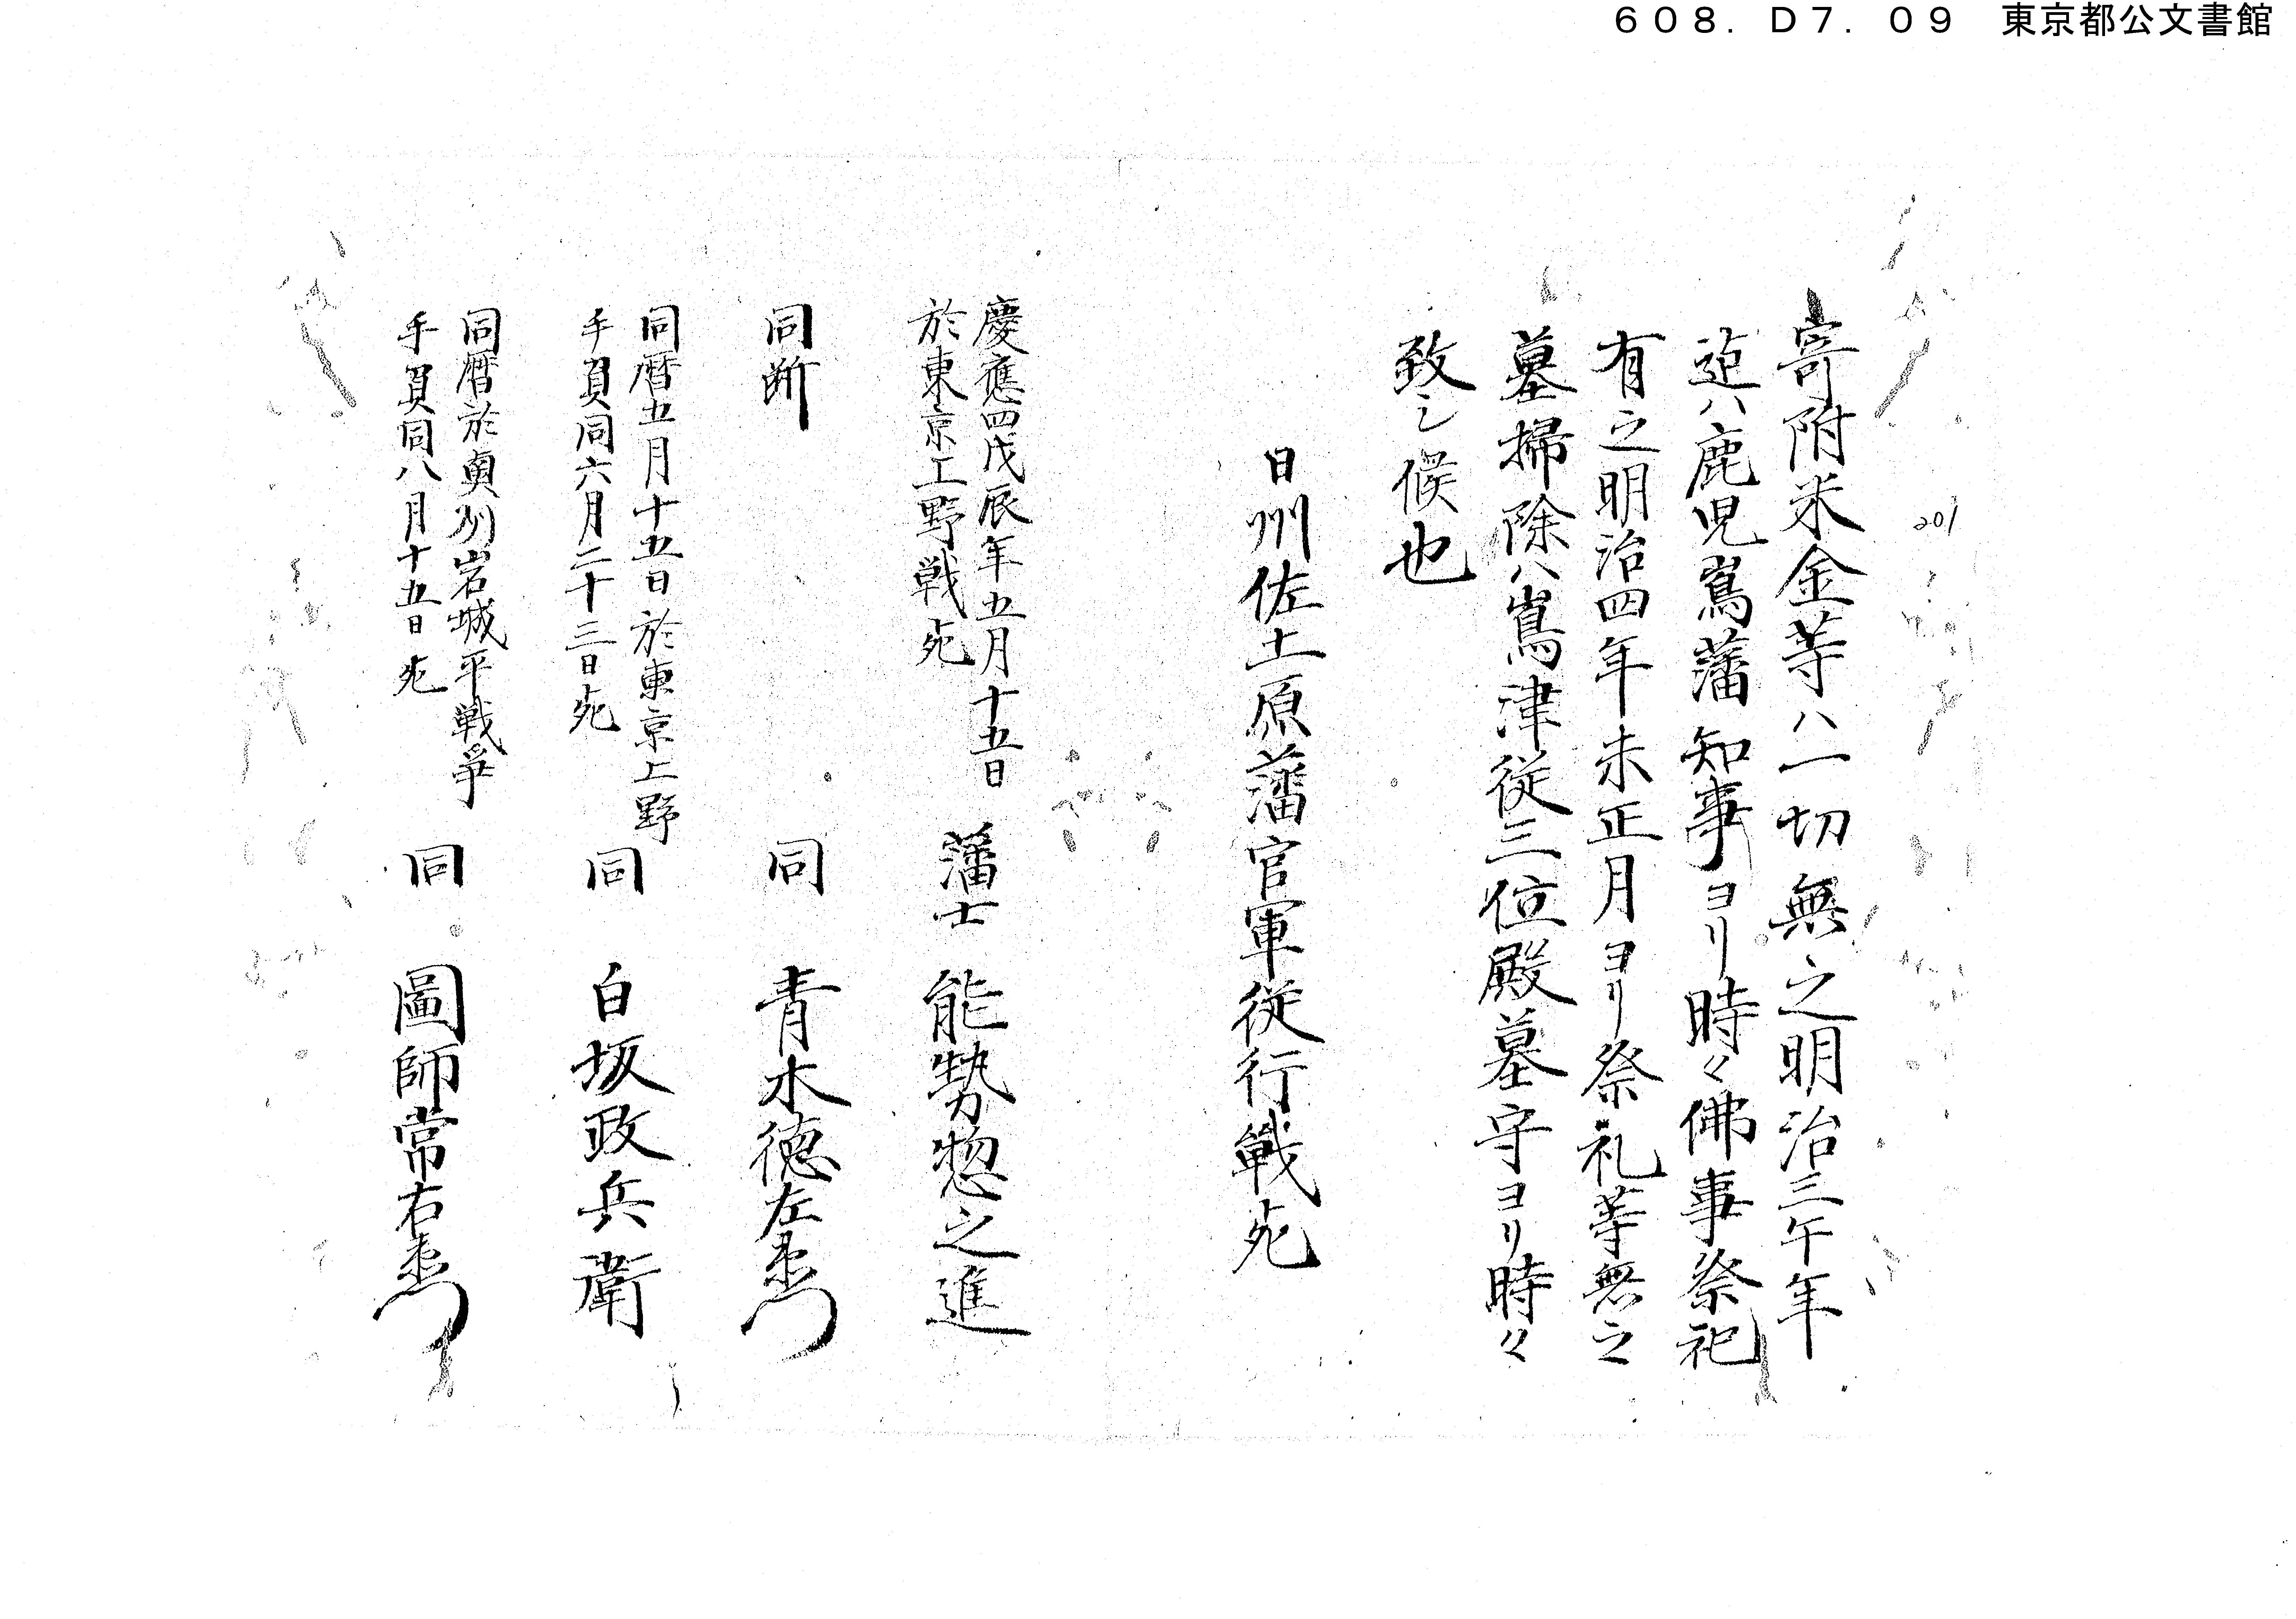 608.D7.09 東京都公文書館
201
寄附米金等ハ一切無之明治三午年
迠ハ鹿児嶌藩知事ヨリ時々佛事祭祀
有之明治四年未正月ヨリ祭礼等無之
墓掃除ハ嶌津従三位殿墓守ヨリ時々
致シ候也
日州佐土原藩官軍従行戦死
慶應四戊辰年五月十五日
於東京上野戦死
藩士 能勢惣之進
同断
同 青木徳左衛門
同暦五月十五日於東京上野
手負同六月二十三日死
同 白坂政兵衛
同暦於奥州岩城平戦爭
手負同八月十五日死
同 圖師常右衛門